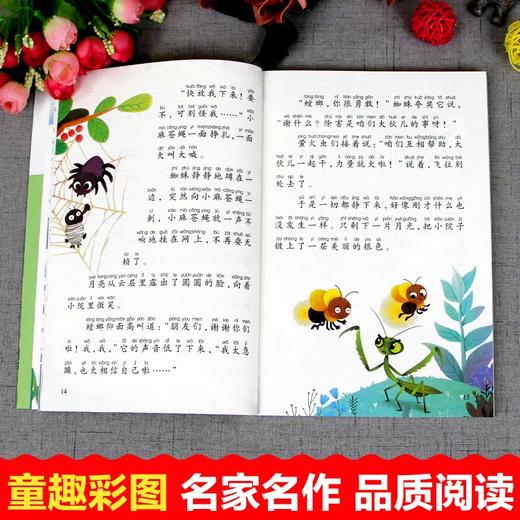 "快放我下来！要
不，可别怪我……"小
麻苍蝇一面挣扎，一面
大叫大喊。
蜘蛛静静地蹲在一
边，突然向小麻苍蝇一
刺，小麻苍蝇就一声不
响地挂在网上，不再耍无
赖了。
月亮从云层里露出了圆圆的脸，向着
小院里微笑。
螳螂仰面高叫道："朋友们，谢谢你们
啦！我，我，"它的声音低了下来，"我太急
躁，也太相信自己啦……"
14
"螳螂，你很勇敢！"蜘蛛夸奖它说，
"谢什么？除害是咱们大伙儿的事呀！"
萤火虫们接着说："咱们互相帮助，大
伙儿一起干，力量就大啦！"说着，飞往别
处去了。
于是一切都静下来，好像刚才什么也
没发生一样。只剩下一片月光，把小院子
镀上了一层美丽的银色。
15
童趣彩图 名家名作 品质阅读